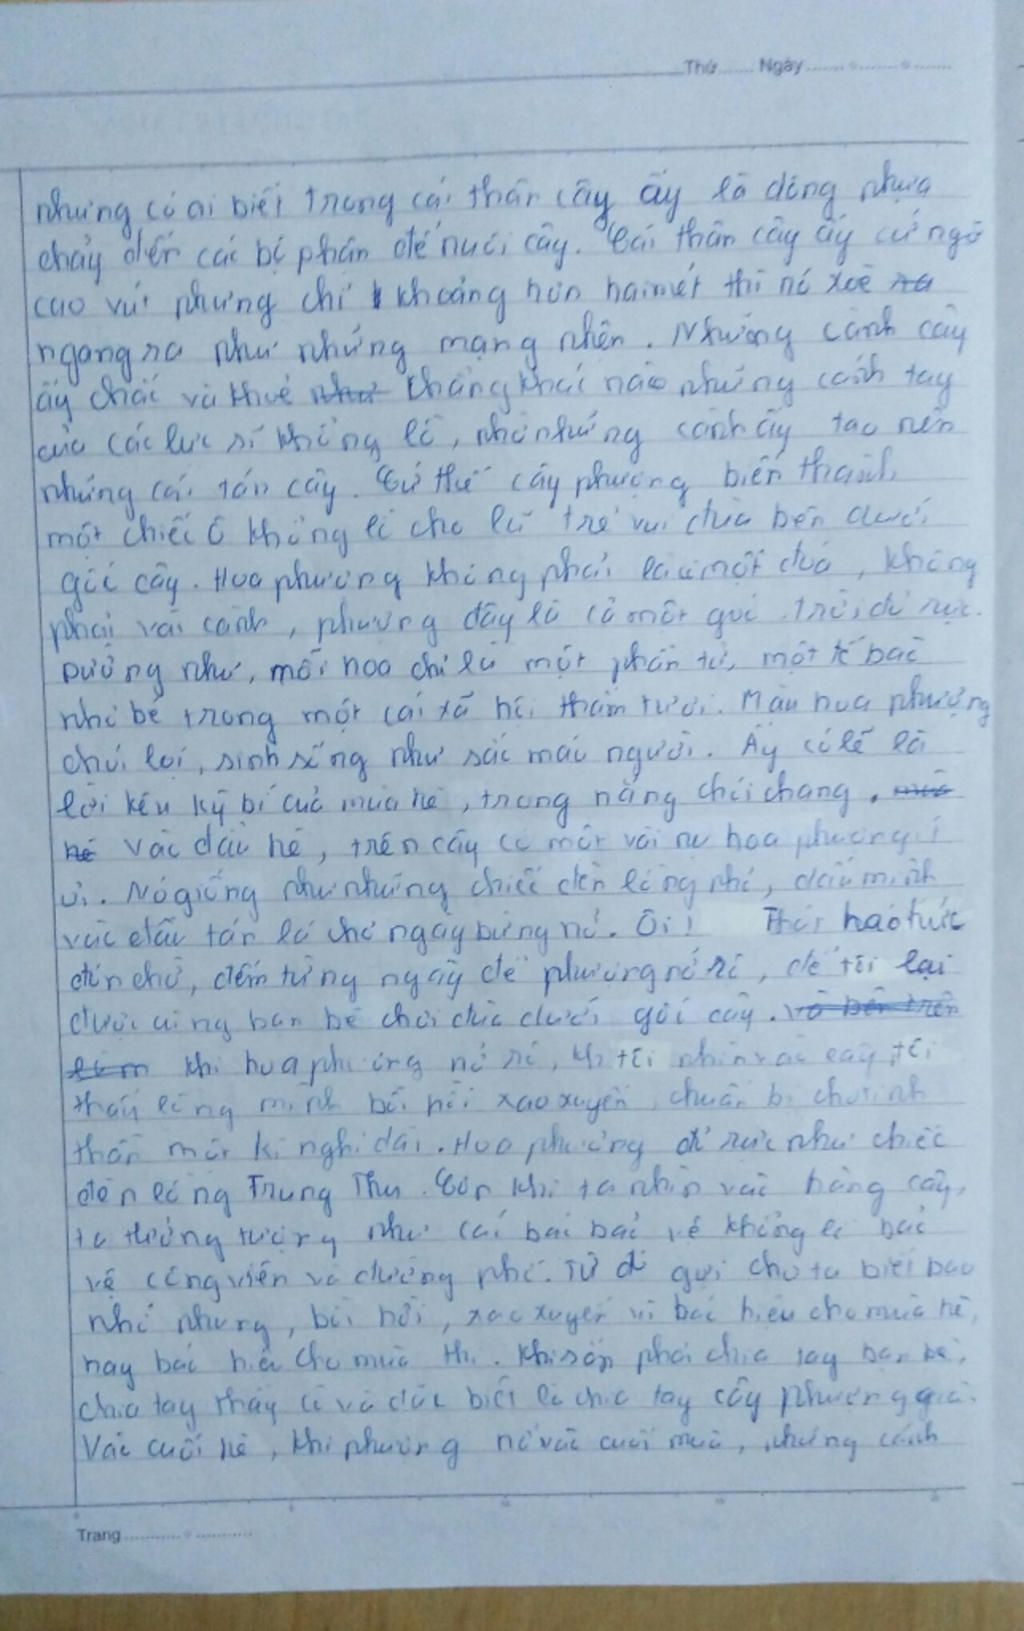 Thứ...... Ngày ....................
nhưng có ai biết trong cái thân cây ấy là dòng nhựa
chảy đến các bộ phận để nuôi cây. Cái thân cây ấy cứ ngỡ
cao vút nhưng chỉ khoảng hơn hai mét thì nó xoè ra
ngang ra như những mạng nhện. Những cành cây
ấy chắc và khoẻ như chẳng khác nào những cánh tay
của các lực sĩ khổng lồ, nhờ những cành ấy tạo nên
những cái tán cây. Cứ thế cây phượng biến thành
một chiếc ô khổng lồ cho lũ trẻ vui đùa bên dưới
gốc cây. Hoa phượng không phải là một đoá, không
phải vài cành, phượng đây là cả một góc trời đỏ rực.
Dường như, mỗi hoa chỉ là một phần tử, một tế bào
nhỏ bé trong một cái xã hội thắm tươi. Màu hoa phượng
chói lọi, sinh sống như sắc máu người. Ấy có lẽ là
lời kêu kỳ bí của mùa hè, trong nắng chói chang. mùa
hè vào đầu hè, trên cây có một vài nụ hoa phượng
Nó giống như những chiếc đèn lồng nhỏ, dấu mình
vào tán lá chờ ngày bừng nở. Ôi! Thật háo hức
đón chờ, đếm từng ngày để phượng nở rộ, để tôi lại
được cùng bạn bè chơi đùa dưới gốc cây. và bên trên
khi hoa phượng nở rộ, khi tôi nhìn vào cây, tôi
thấy lòng mình bồi hồi xao xuyến, chuẩn bị cho tinh
thần một kì nghỉ dài. Hoa phượng đỏ rực như chiếc
đèn lồng Trung Thu. Còn khi ta nhìn vào hàng cây,
ta tưởng tượng như cái bao bao vẻ khổng lồ bao
vệ công viên và đường phố. Từ đó gợi cho ta biết bao
nhớ nhung, bồi hồi, xao xuyến vì báo hiệu cho mùa hè,
hay báo hiệu cho mùa thi. Khi sắp phải chia tay bạn bè,
chia tay thầy cô và đặc biệt là chia tay cây phượng già.
Vào cuối hè, khi phượng nở vào cuối mùa, những cánh
Trang ....................